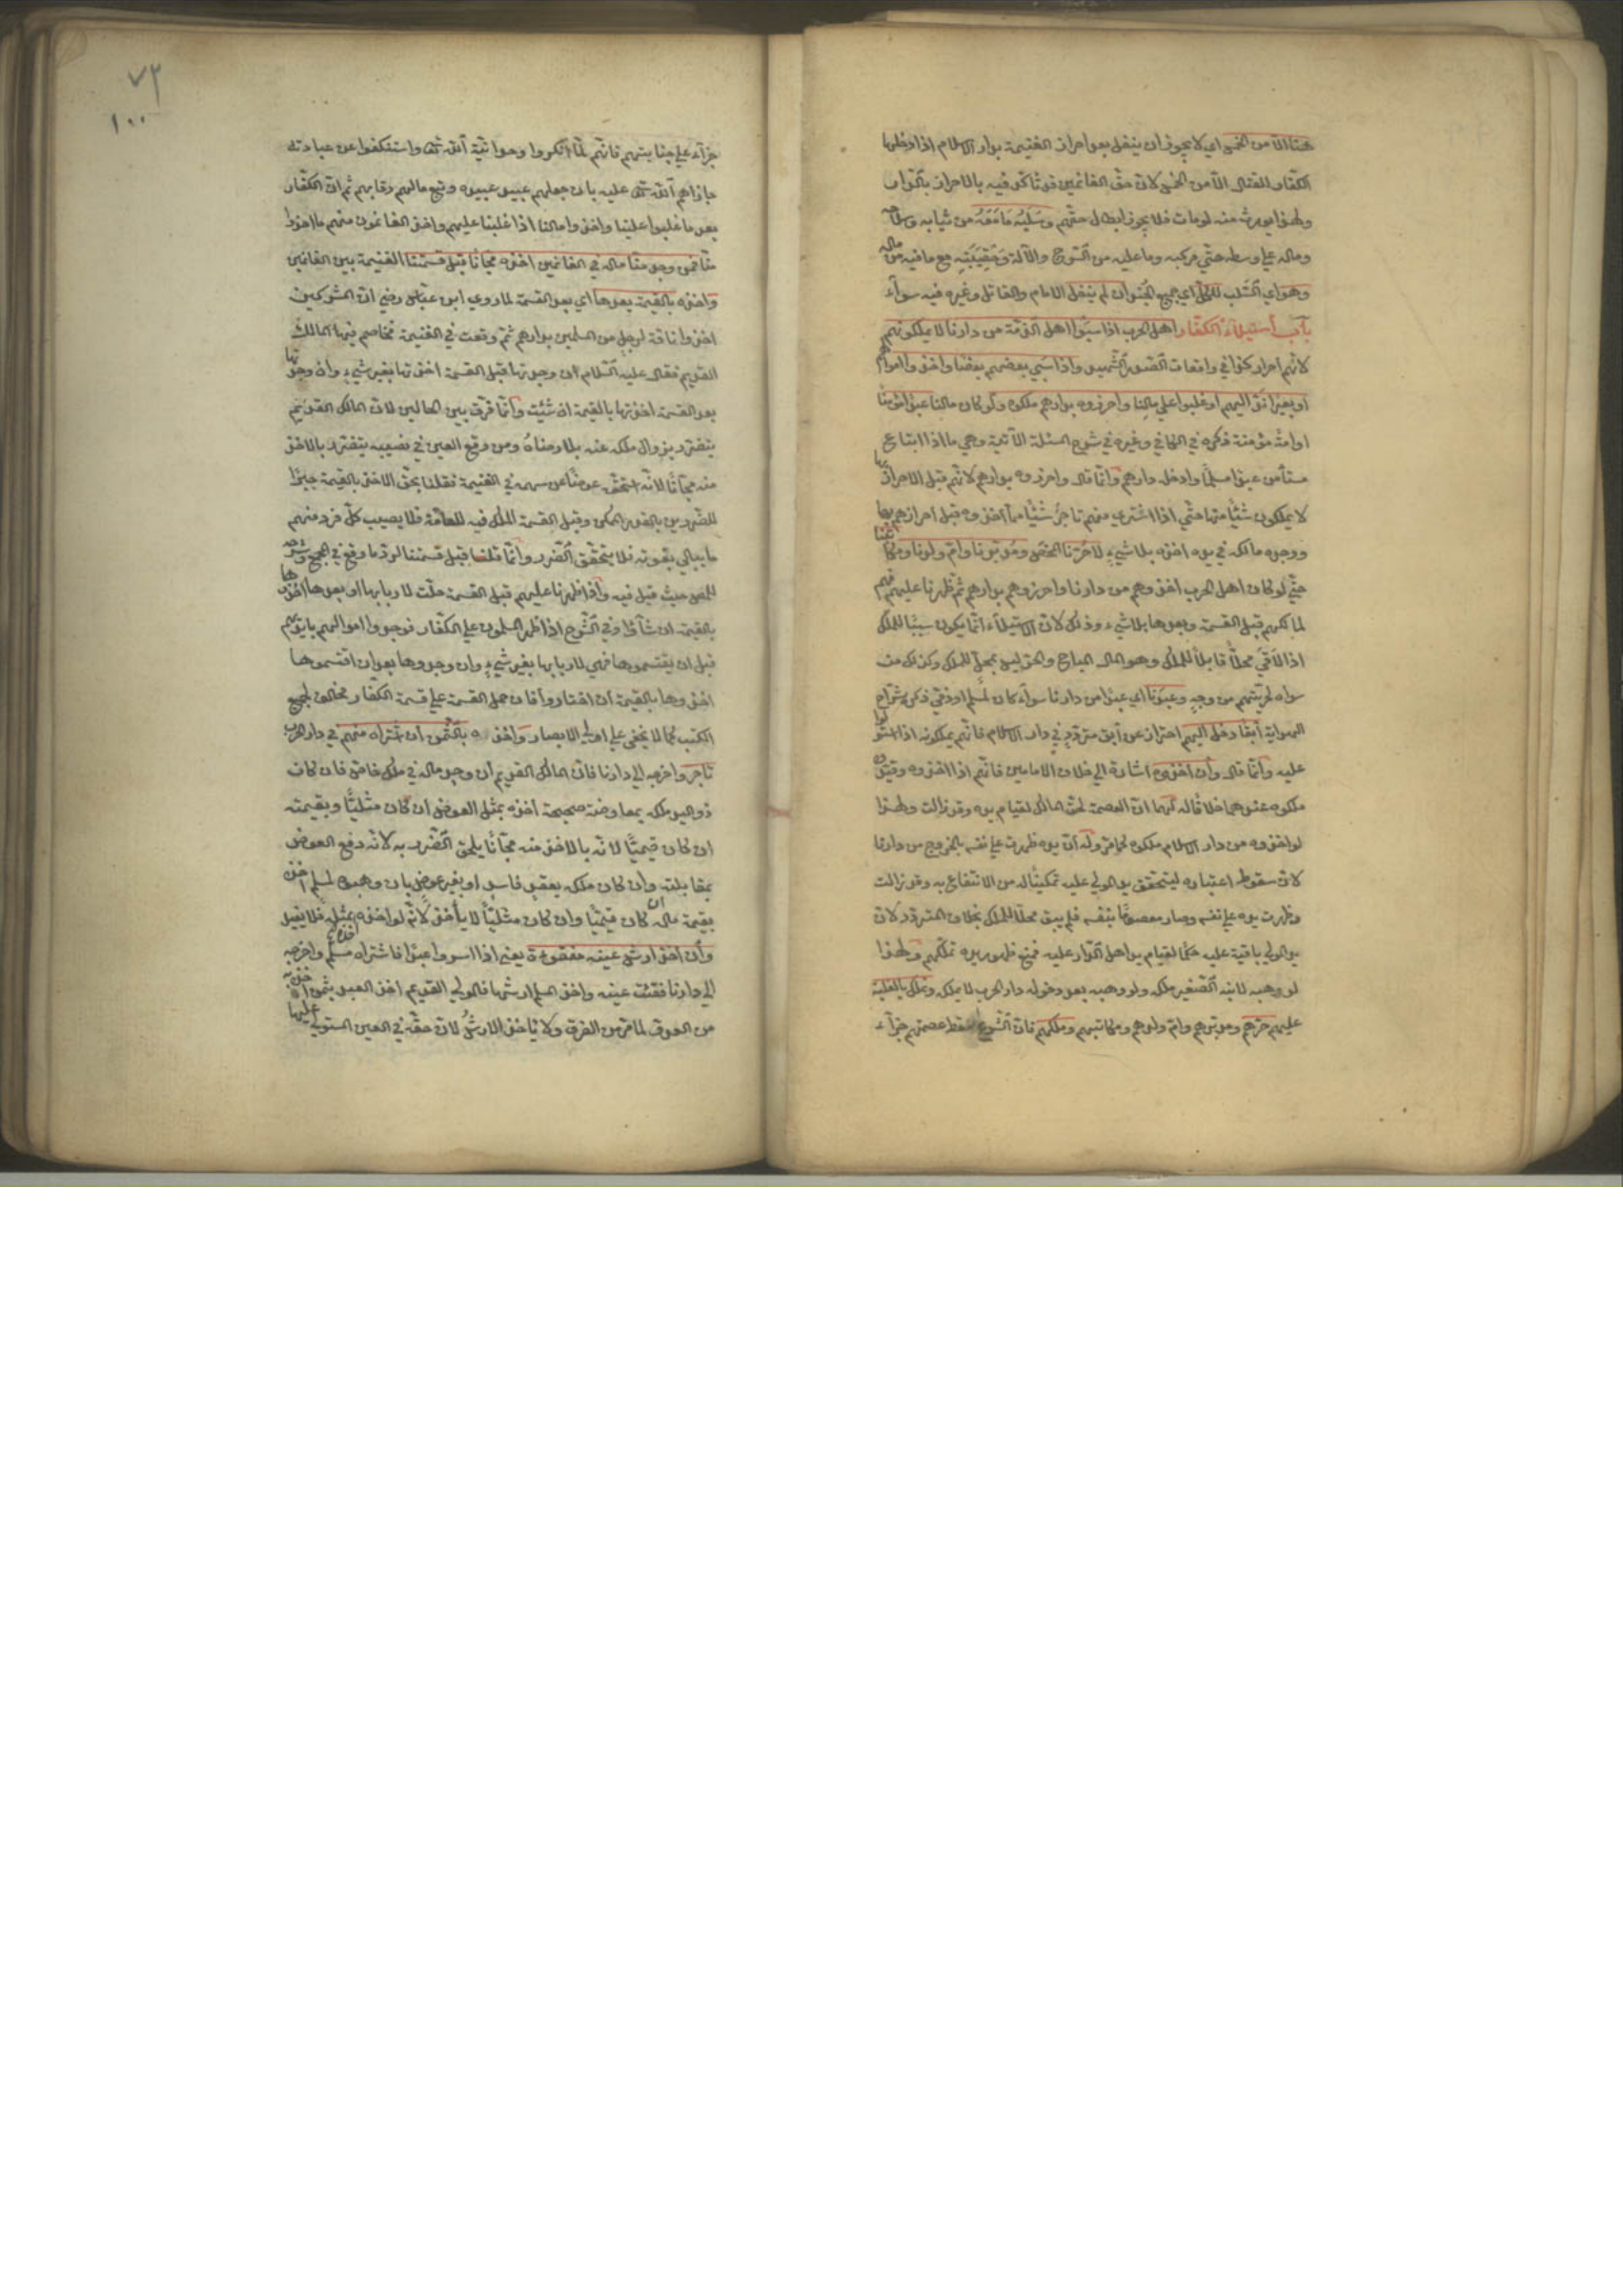 هنا الا من الخمس اي لا يجوز ان ينفل بعد احراز الغنيمة بدار الاسلام اذا دخلها
الكفار للقتال الا من الخمس لان حق الغانمين قد تأكد فيه بالاحراز بالدار
ولهذا يورث منه لو مات فلا يجوز ابطال حقهم وسلبه ما معه من ثيابه وسلاحه
وماله على وسطه حتى مركبه وما عليه من السرج والآلة وحقيبته مع ما فيه من ماله
وهو اي السلب للكل اي جميع الجند ان لم ينفل الامام والقاتل وغيره فيه سواء
باب استيلاء الكفار اهل الحرب اذا سبوا اهل الذمة من دارنا لا يملكونهم
لانهم احرار كذا في واقعات الصدر الشهيد واذا سبي بعضهم بعضا واخذوا اموالهم
او بعيرا ند اليهم او غلبوا على مالنا واحرزوه بدارهم ملكوه ولو كان مالنا عبدا مؤمنا
او امة مؤمنة ذكره في الكافي وغيره في شرح المسئلة الآتية وهي ما اذا ابتاع
مستأمن عبدا مسلما وادخله دارهم وانما قال واحرزوه بدارهم لانهم قبل الاحراز بها
لا يملكون شيئا منها حتى اذا اشترى منهم تاجر شيئا مما اخذوه قبل احرازهم بها
ووجده مالكه في يده اخذه بلا شيء لا حرنا المحض ومدبرنا وام ولدنا ومكاتبنا
حتى لو كان اهل الحرب اخذوهم من دارنا واحرزوهم بدارهم ثم ظهرنا عليهم فهم
لمالكهم قبل القسمة وبعدها بلا شيء وذلك لان الاستيلاء انما يكون سببا للملك
اذا لاقى محلا قابلا للملك وهو المال المباح والحر ليس بمحل للملك وكذلك من
سواه لحريتهم من وجه وعبدنا اي عبدا من دارنا سواء كان لمسلم او ذمي ذكره شراح
الهداية آبقا دخل اليهم احتراز عن آبق متردد في دار الاسلام فانهم يملكونه اذا استولوا
عليه وانما قال وان اخذوه اشارة الى خلاف الامامين فانهم اذا اخذوه وقيدوه
ملكوه عندهما خلافا له لهما ان العصمة لحق المالك لقيام يده وقد زالت ولهذا
لو اخذوه من دار الاسلام ملكوه كما مر وله ان يده ظهرت على نفسه بالخروج من دارنا
لان سقوط اعتباره ليتحقق يد المولى عليه تمكينا له من الانتفاع به وقد زالت
وظهرت يده على نفسه وصار معصوما بنفسه فلم يبق محلا للملك بخلاف المتردد لان
يد المولى باقية عليه حكما لقيام يد اهل الدار عليه فمنع ظهور يده تملكهم ولهذا
لو وهبه لابنه الصغير ملكه ولو وهبه بعد دخوله دار الحرب لا يملكه ونملك بالغلبة
عليهم حرهم ومدبرهم وام ولدهم ومكاتبهم وملكهم فان الشرع اسقط عصمتهم جزاء
٧٣
١٠٠
جزاء على جنايتهم فانهم لما انكروا وحدانية الله تعالى واستنكفوا عن عبادته
جازاهم الله تعالى عليه بان جعلهم عبيد عبيده وتبع مالهم رقابهم ثم ان الكفار
بعد ما غلبوا علينا واخذوا مالنا اذا غلبنا عليهم واخذ الغانمون منهم ما اخذوا
منا فمن وجد منا ماله في الغانمين اخذه مجانا قبل قسمتنا الغنيمة بين الغانمين
واخذه بالقيمة بعدها اي بعد القسمة لما روي ابن عباس رضي ان المشركين
اخذوا ناقة لرجل من المسلمين بدارهم ثم وقعت في الغنيمة فخاصم فيها المالك
القديم فقال عليه السلام ان وجدتها قبل القسمة اخذتها بغير شيء وان وجدتها
بعد القسمة اخذتها بالقيمة ان شئت وانما فرق بين الحالين لان المالك القديم
يتضرر بزوال ملكه عنه بلا رضاه ومن وقع العين في نصيبه يتضرر بالاخذ
منه مجانا لانه استحقه عوضا عن سهمه في الغنيمة فقلنا بحق الاخذ بالقيمة جبرا
للضررين بالقدر الممكن وقبل القسمة الملك فيه للعامة فلا يصيب كل فرد منهم
ما يبالي بفوته فلا يتحقق الضرر وانما قلنا قبل قسمتنا لرد ما وقع في المجمع وشرحه
للمص حيث قيل فيه واذا ظهرنا عليهم قبل القسمة حلت لاربابها او بعدها اخذوها
بالقيمة ان شاؤا وفي الشرح اذا ظهر المسلمون على الكفار فوجدوا اموالهم بايديهم
قبل ان يقتسموها فهي لاربابها بغير شيء وان وجدوها بعد ان اقتسموها
اخذوها بالقيمة ان اختاروا فان حمل القسمة على قسمة الكفار مخالف لجميع
الكتب كما لا يخفى على اولي الابصار واخذه بالثمن ان شراه منهم في دار الحرب
تاجر واخرجه الى دارنا فان المالك القديم ان وجد ماله في ملك خاص فان كان
ذو اليد ملكه بمعاوضة صحيحة اخذه بمثل العوض ان كان مثليا وبقيمته
ان كان قيميا لانه بالاخذ منه مجانا يلحق الضرر به لانه دفع العوض
بمقابلته وان كان ملكه بعقد فاسد او بغير عوض بان وهبوه لمسلم اخذه
بقيمة ماله ان كان قيميا وان كان مثليا لا يأخذ لانه لو اخذه اخذه بمثله فلا يفيد
وان اخذ ارش عينه مفقوءة يعني اذا اسروا عبدا فاشتراه مسلم واخرجه
الى دارنا ففقئت عينه واخذ المسلم ارشها فالمولى القديم اخذ العبد بثمن اخذ به
من العدو لما مر من الفرق ولا يأخذ الارش لان حقه في العين المستولى عليها